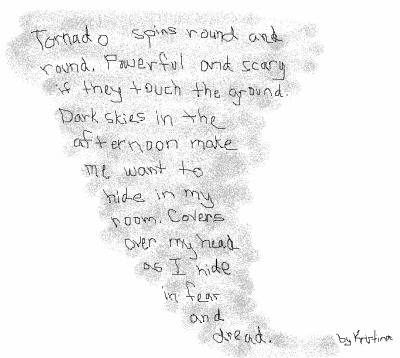 Tornado spins round and
round. Powerful and scary
if they touch the ground.
Dark skies in the
afternoon make
me want to
hide in my
room. Covers
over my head
as I hide
in fear
and
dread.
by Kristina